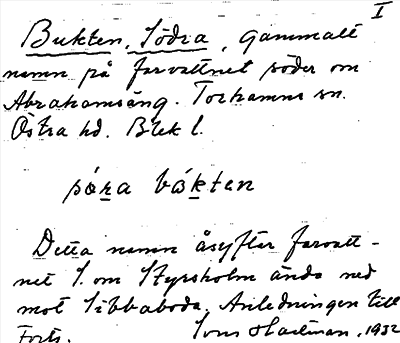 I
Bukten, Södra, gammalt
namn på farvattnet söder om
Abrahamsäng. Torhamns sn.
Östra hd. Blek l.
sǿra bάkten
Detta namn åsyftar farvatt-
net S. om Styrsholm ända ned
mot Sibbaboda. Anledningen till
Forts. 1932